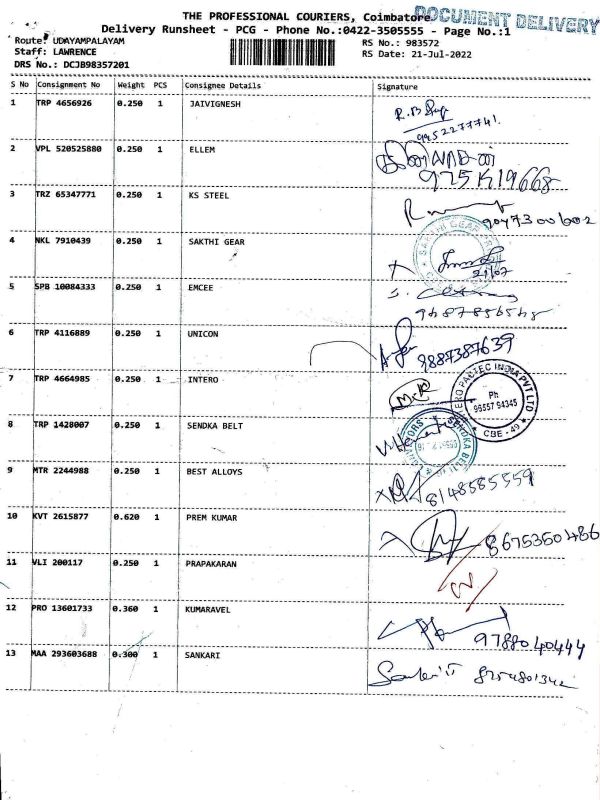 THE PROFESSIONAL COURIERS, Coimbatore
DOCUMENT DELIVERY
Delivery Runsheet - PCG - Phone No.:0422-3505555 - Page No.:1
Route: UDAYAMPALAYAM
RS No.: 983572
Staff: LAWRENCE
RS Date: 21-Jul-2022
DRS No.: DCJB98357201
S No Consignment No Weight PCS Consignee Details Signature
1 TRP 4656926 0.250 1 JAIVIGNESH
9952277741.
2 VPL 520525880 0.250 1 ELLEM
3 TRZ 65347771 0.250 1 KS STEEL
4 NKL 7910439 0.250 1 SAKTHI GEAR
SAKTHI GEAR
21/07
5 SPB 10084333 0.250 1 EMCEE
6 TRP 4116889 0.250 1 UNICON
9887387639
7 TRP 4664985 0.250 1 INTERO
INDIA PVT LTD
Ph
96557 94345
CBE - 49
8 TRP 1428007 0.250 1 SENDKA BELT
SENDKA BELT
9 MTR 2244988 0.250 1 BEST ALLOYS
8148585559
10 KVT 2615877 0.620 1 PREM KUMAR
8675350486
11 VLI 200117 0.250 1 PRAPAKARAN
12 PRO 13601733 0.360 1 KUMARAVEL
9788040444
13 MAA 293603688 0.300 1 SANKARI
8254801342